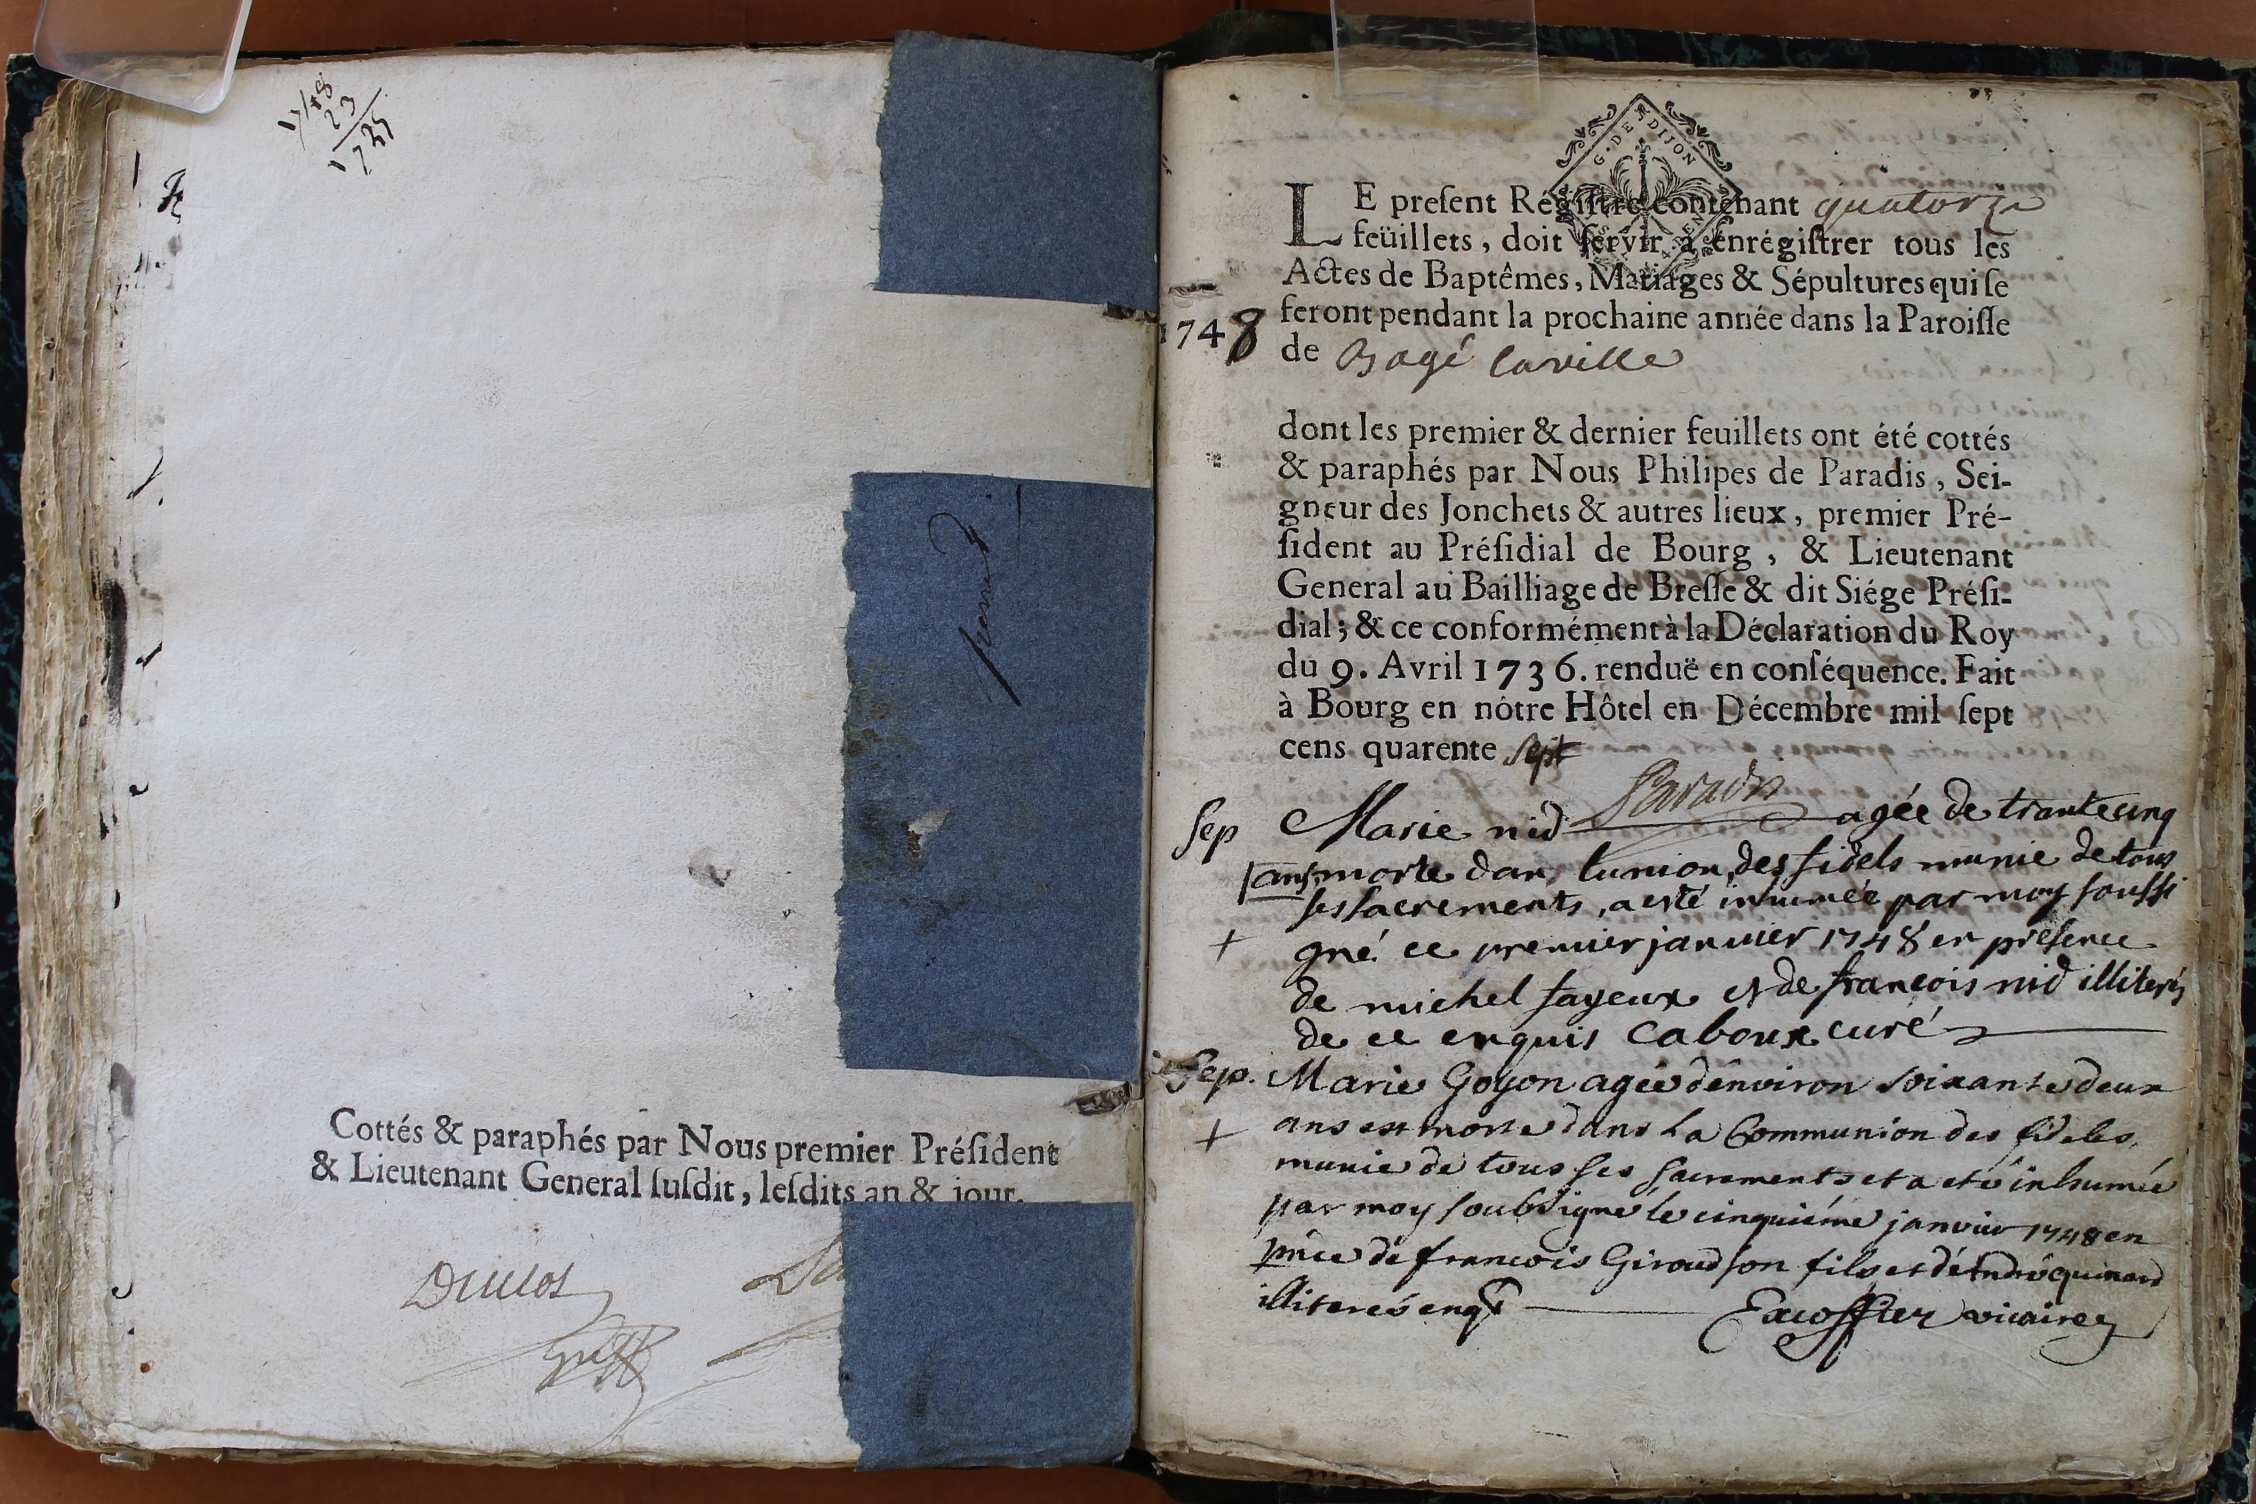 1748
23
1725
premier
Cottés & paraphés par Nous premier Préſident
& Lieutenant General ſuſdit, leſdits an & jour.
Duclos
Greff
G. DE DIJON
LE preſent Régiſtre contenant quatorze
feüillets, doit ſervir à enrégiſtrer tous les
Actes de Baptêmes, Mariages & Sépultures qui ſe
feront pendant la prochaine année dans la Paroiſſe
1748
de Bagé laville
dont les premier & dernier feuillets ont été cottés
& paraphés par Nous Philipes de Paradis, Sei-
gneur des Jonchets & autres lieux, premier Pré-
ſident au Préſidial de Bourg, & Lieutenant
General au Bailliage de Breſſe & dit Siége Préſi-
dial; & ce conformément à la Déclaration du Roy
du 9. Avril 1736. renduë en conſéquence. Fait
à Bourg en nótre Hôtel en Décembre mil ſept
cens quarente sept
Paradis
Sep Marie nid agée de trantecinq
ans morte dans lunion des fidels munie de tous
ses sacrements, a esté inhumée par moy soussi
+ gné ce premier janvier 1748 en présence
de michel fayeux et de françois nid illiterés
de ce enquis Caboux curé
Sep. Marie Goyon agée dénviron soixante deux
+ ans est morte dans La Communion des fideles,
munie de tous ses sacrements et a eté inhumée
par moy soubsigné le cinquiéme janvier 1748 en
pñce dé francois Giroud son fils et dé André quinard
illiterés enqs Excoffier vicaire